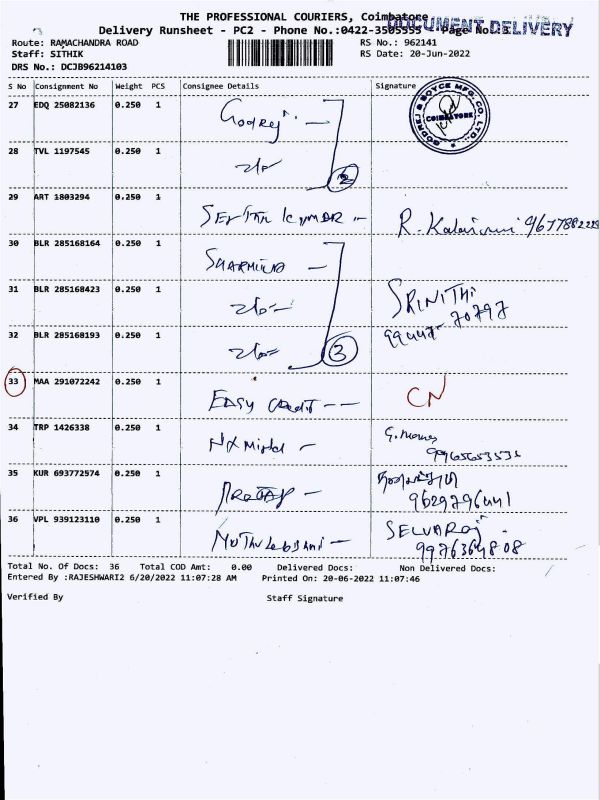 THE PROFESSIONAL COURIERS, Coimbatore
DOCUMENT DELIVERY
Delivery Runsheet - PC2 - Phone No.:0422-3505555 - Page No.:3
Route: RAMACHANDRA ROAD RS No.: 962141
Staff: SITHIK RS Date: 20-Jun-2022
DRS No.: DCJB96214103
S No Consignment No Weight PCS Consignee Details Signature
27 EDQ 25082136 0.250 1 Godrej
GODREJ & BOYCE MFG. CO. LTD. COIMBATORE
28 TVL 1197545 0.250 1 2
29 ART 1803294 0.250 1 R.
30 BLR 285168164 0.250 1
31 BLR 285168423 0.250 1 SRINITHI
32 BLR 285168193 0.250 1 3
33 MAA 291072242 0.250 1 EASY Credit -- CN
34 TRP 1426338 0.250 1
35 KUR 693772574 0.250 1
9629796441
36 VPL 939123110 0.250 1 SELVARAJ
9976364808
Total No. Of Docs: 36 Total COD Amt: 0.00 Delivered Docs: Non Delivered Docs:
Entered By :RAJESHWARI2 6/20/2022 11:07:28 AM Printed On: 20-06-2022 11:07:46
Verified By Staff Signature